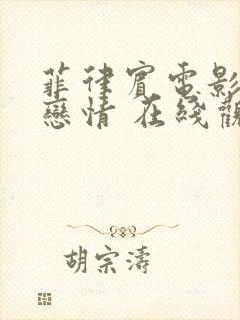 菲律賓電影
戀情 在綫觀
胡宗濤